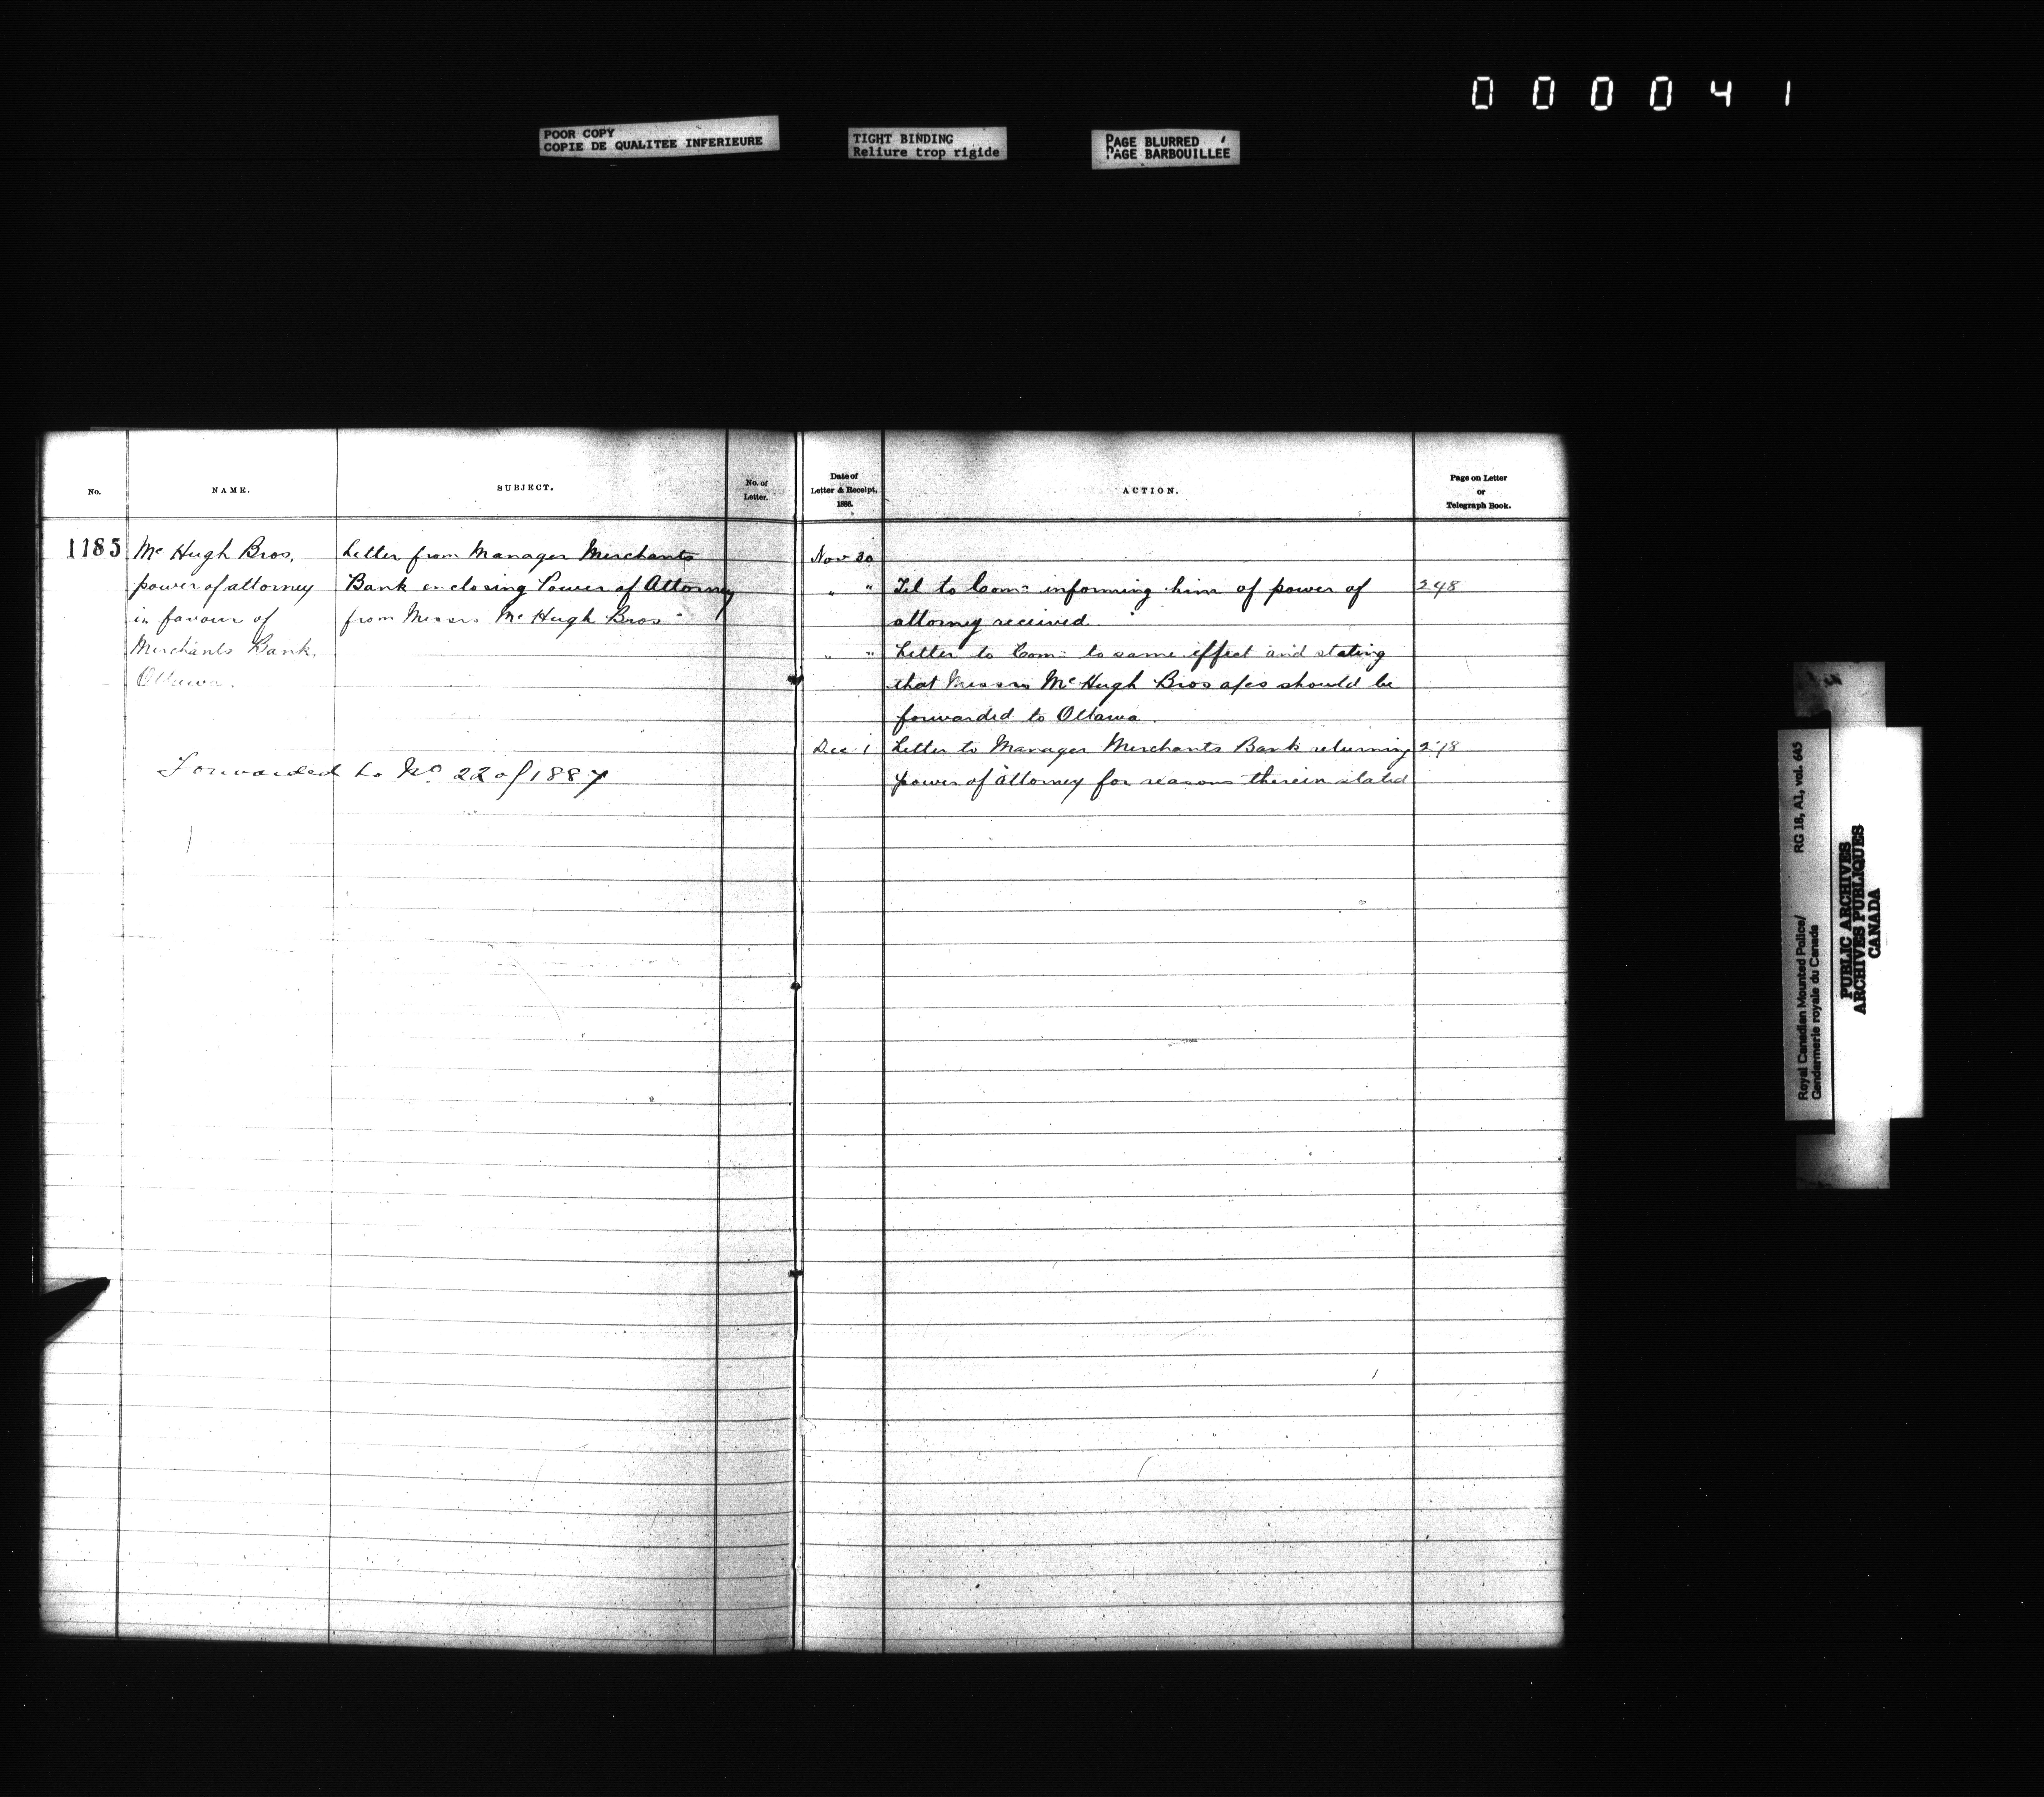 000041
POOR COPY
COPIE DE QUALITEE INFERIEURE
TIGHT BINDING
Reliure trop rigide
PAGE BLURRED
PAGE BARBOUILLEE
No.
NAME.
SUBJECT.
No. of
Letter.
Date of
Letter & Receipt,
1886.
ACTION.
Page on Letter
or
Telegraph Book.
1185
Mc Hugh Bros,
power of attorney
in favour of
Merchants Bank,
Ottawa.
Letter from Manager Merchants
Bank enclosing Power of Attorney
from Messrs Mc Hugh Bros
Forwarded to No 22 of 1887
Nov 30
" " Tel to Com: informing him of power of 248
attorney received.
" " Letter to Com: to same effect and stating
that Messrs McHugh Bros a/cs should be
forwarded to Ottawa.
Dec 1 Letter to Manager Merchants Bank returning
power of attorney for reasons therein stated
Royal Canadian Mounted Police/
Gendarmerie royale du Canada
RG 18, A1, vol. 645
PUBLIC ARCHIVES
ARCHIVES PUBLIQUES
CANADA